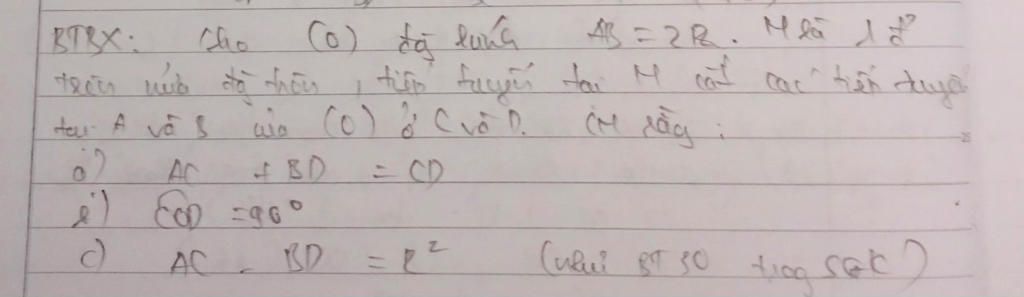 BTBX: Cho (O) đg kính AB = 2R. M là 1 đ'
trên nửa đg tròn, tiếp tuyến tại M cắt các tiếp tuyến
tại A và B của (O) ở C và D. CM rằng:
a) AC + BD = CD
b) COD = 90°
c) AC . BD = R² (như BT 30 trog SGK)